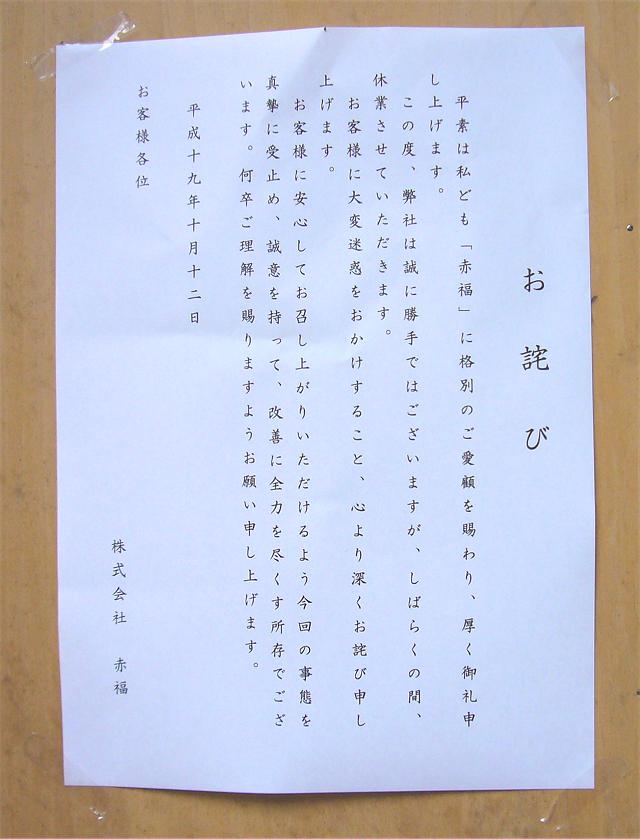 お詫び
平素は私ども「赤福」に格別のご愛顧を賜わり、厚く御礼申
し上げます。
この度、弊社は誠に勝手ではございますが、しばらくの間、
休業させていただきます。
お客様に大変迷惑をおかけすること、心より深くお詫び申し
上げます。
お客様に安心してお召し上がりいただけるよう今回の事態を
真摯に受止め、誠意を持って、改善に全力を尽くす所存でござ
います。何卒ご理解を賜りますようお願い申し上げます。
平成十九年十月十二日
お客様各位
株式会社 赤福